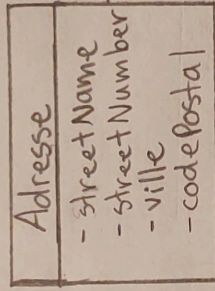 Adresse
- streetName
- streetNumber
- ville
- codePostal